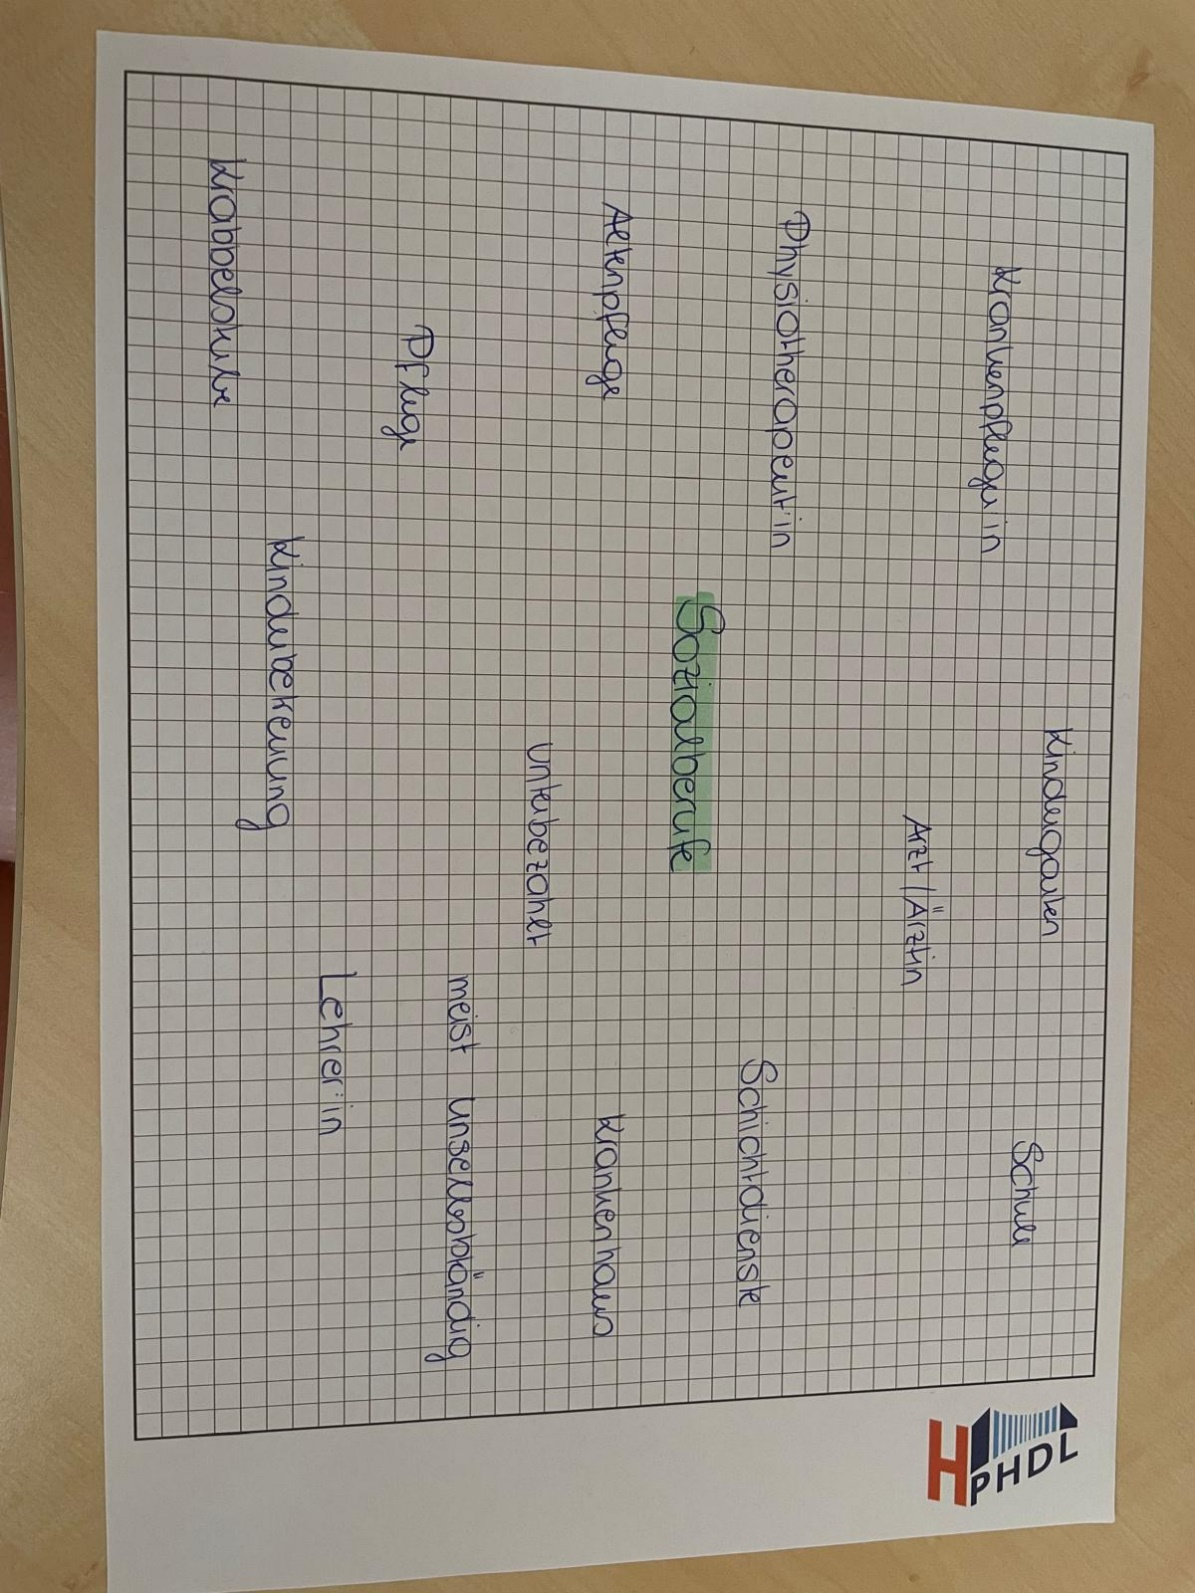 Kindergarten
Schule
Krankenpfleger:in
Arzt / Ärztin
Physiotherapeut:in
Schichtdienste
Sozialberufe
Altenpflege
Krankenhaus
unterbezahlt
Pflege
meist unselbständig
Lehrer:in
Kinderbetreuung
Krabbelstube
PHDL